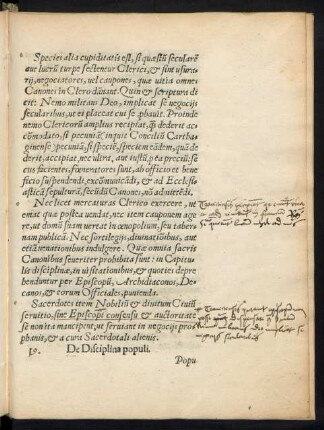 Species alia cupiditatis est, si quæstũ secularẽ
aut lucrũ turpe sectentur Clerici, & sint usura-
rij, negociatores, uel caupones, quæ uitia omnes
Canones in Clero dãnant. Quin & scriptura di
cit: Nemo militans Deo, implicat se negocijs
secularibus, ut ei placeat cui se ꝓbauit. Proinde
nemo Clericorũ amplius recipiat, ꝗ̃ dederit ac-
cõmodato, si pecuniã, inquit Concilium Cartha-
ginense, pecuniã, si speciẽ, speciem eãdem, quã de
derit, accipiat, nec ultra, aut iustũ preciũ: se
cus facientes, fœneratores sunt, ab officio et bene
ficio suspendendi, excõmunicãdi, & ad Ecclesi-
asticã sepulturã, secũdũ Canones, nõ admittẽdi.
Nec licet mercaturas Clerico exercere, ut
emat quæ postea uendat, nec item cauponem age
re, ut domũ suam uertat in œnopolium, seu taber-
nam publicã. Nec sortilegijs, diuinatiõibus, aut
ariolationibus indulgere. Quæ omnia sacris
Canonibus seueriter prohibita sunt: in Capitulis
disciplinæ, in uisitationibus, & quoties depre
henduntur per Episcopũ, Archidiaconos, De-
canos, & eorum Officiales, punienda.
Sacerdotes item Nobiliũ & diuitum Ciuiũ
seruitio, sine Episcopi consensu & auctoritate
se non ita mancipent, ne seruiant in negocijs pro
phanis, & a cura Sacerdotali alienis.
De Disciplina populi.
Popu